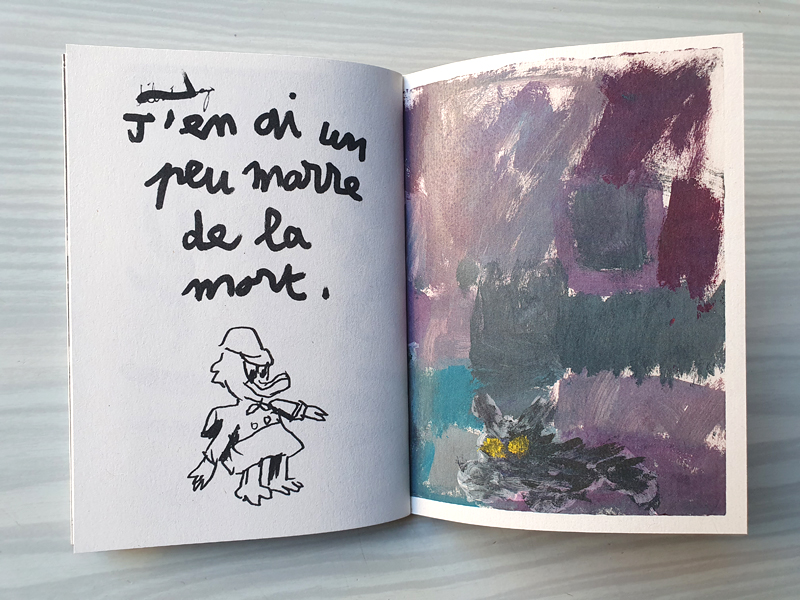 J'en ai un
peu marre
de la
mort.